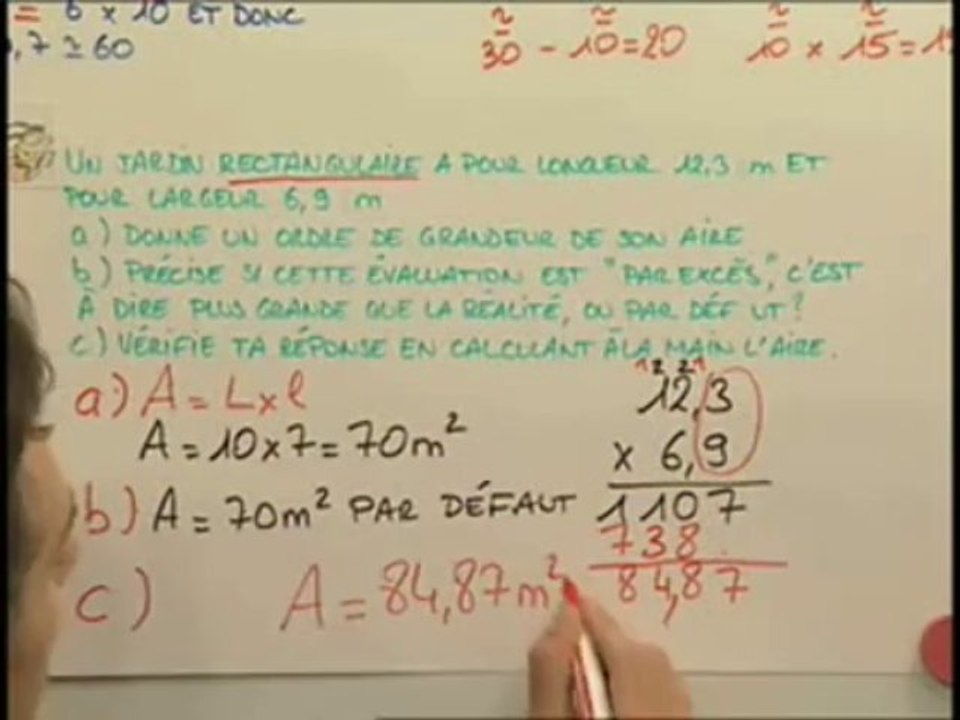 = 6 x 10 ET DONC
,7 ≃ 60
30 - 10 = 20
10 x 15 = 1
UN JARDIN RECTANGULAIRE A POUR LONGUEUR 12,3 m ET
POUR LARGEUR 6,9 m
a) DONNE UN ORDRE DE GRANDEUR DE SON AIRE
b) PRÉCISE SI CETTE ÉVALUATION EST "PAR EXCÈS," C'EST
À DIRE PLUS GRANDE QUE LA RÉALITÉ, OU PAR DÉF UT?
c) VÉRIFIE TA RÉPONSE EN CALCULANT À LA MAIN L'AIRE.
a) A = L x l
A = 10 x 7 = 70 m²
b) A = 70 m² PAR DÉFAUT
c) A = 84,87 m²
1 2 2 1
12,3
x 6,9
1107
738.
84,87